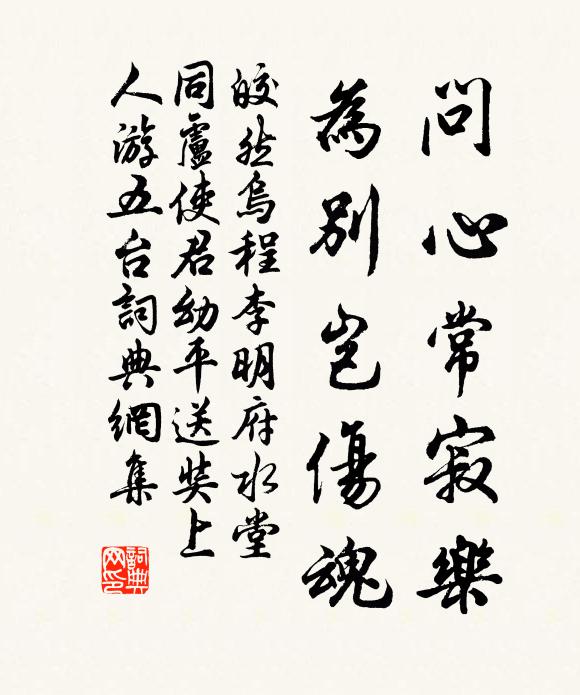 問心常寂樂
為別豈傷魂
皎然烏程李明府水堂
同盧使君幼平送奘上
人游五台詞典網集
詞典網印